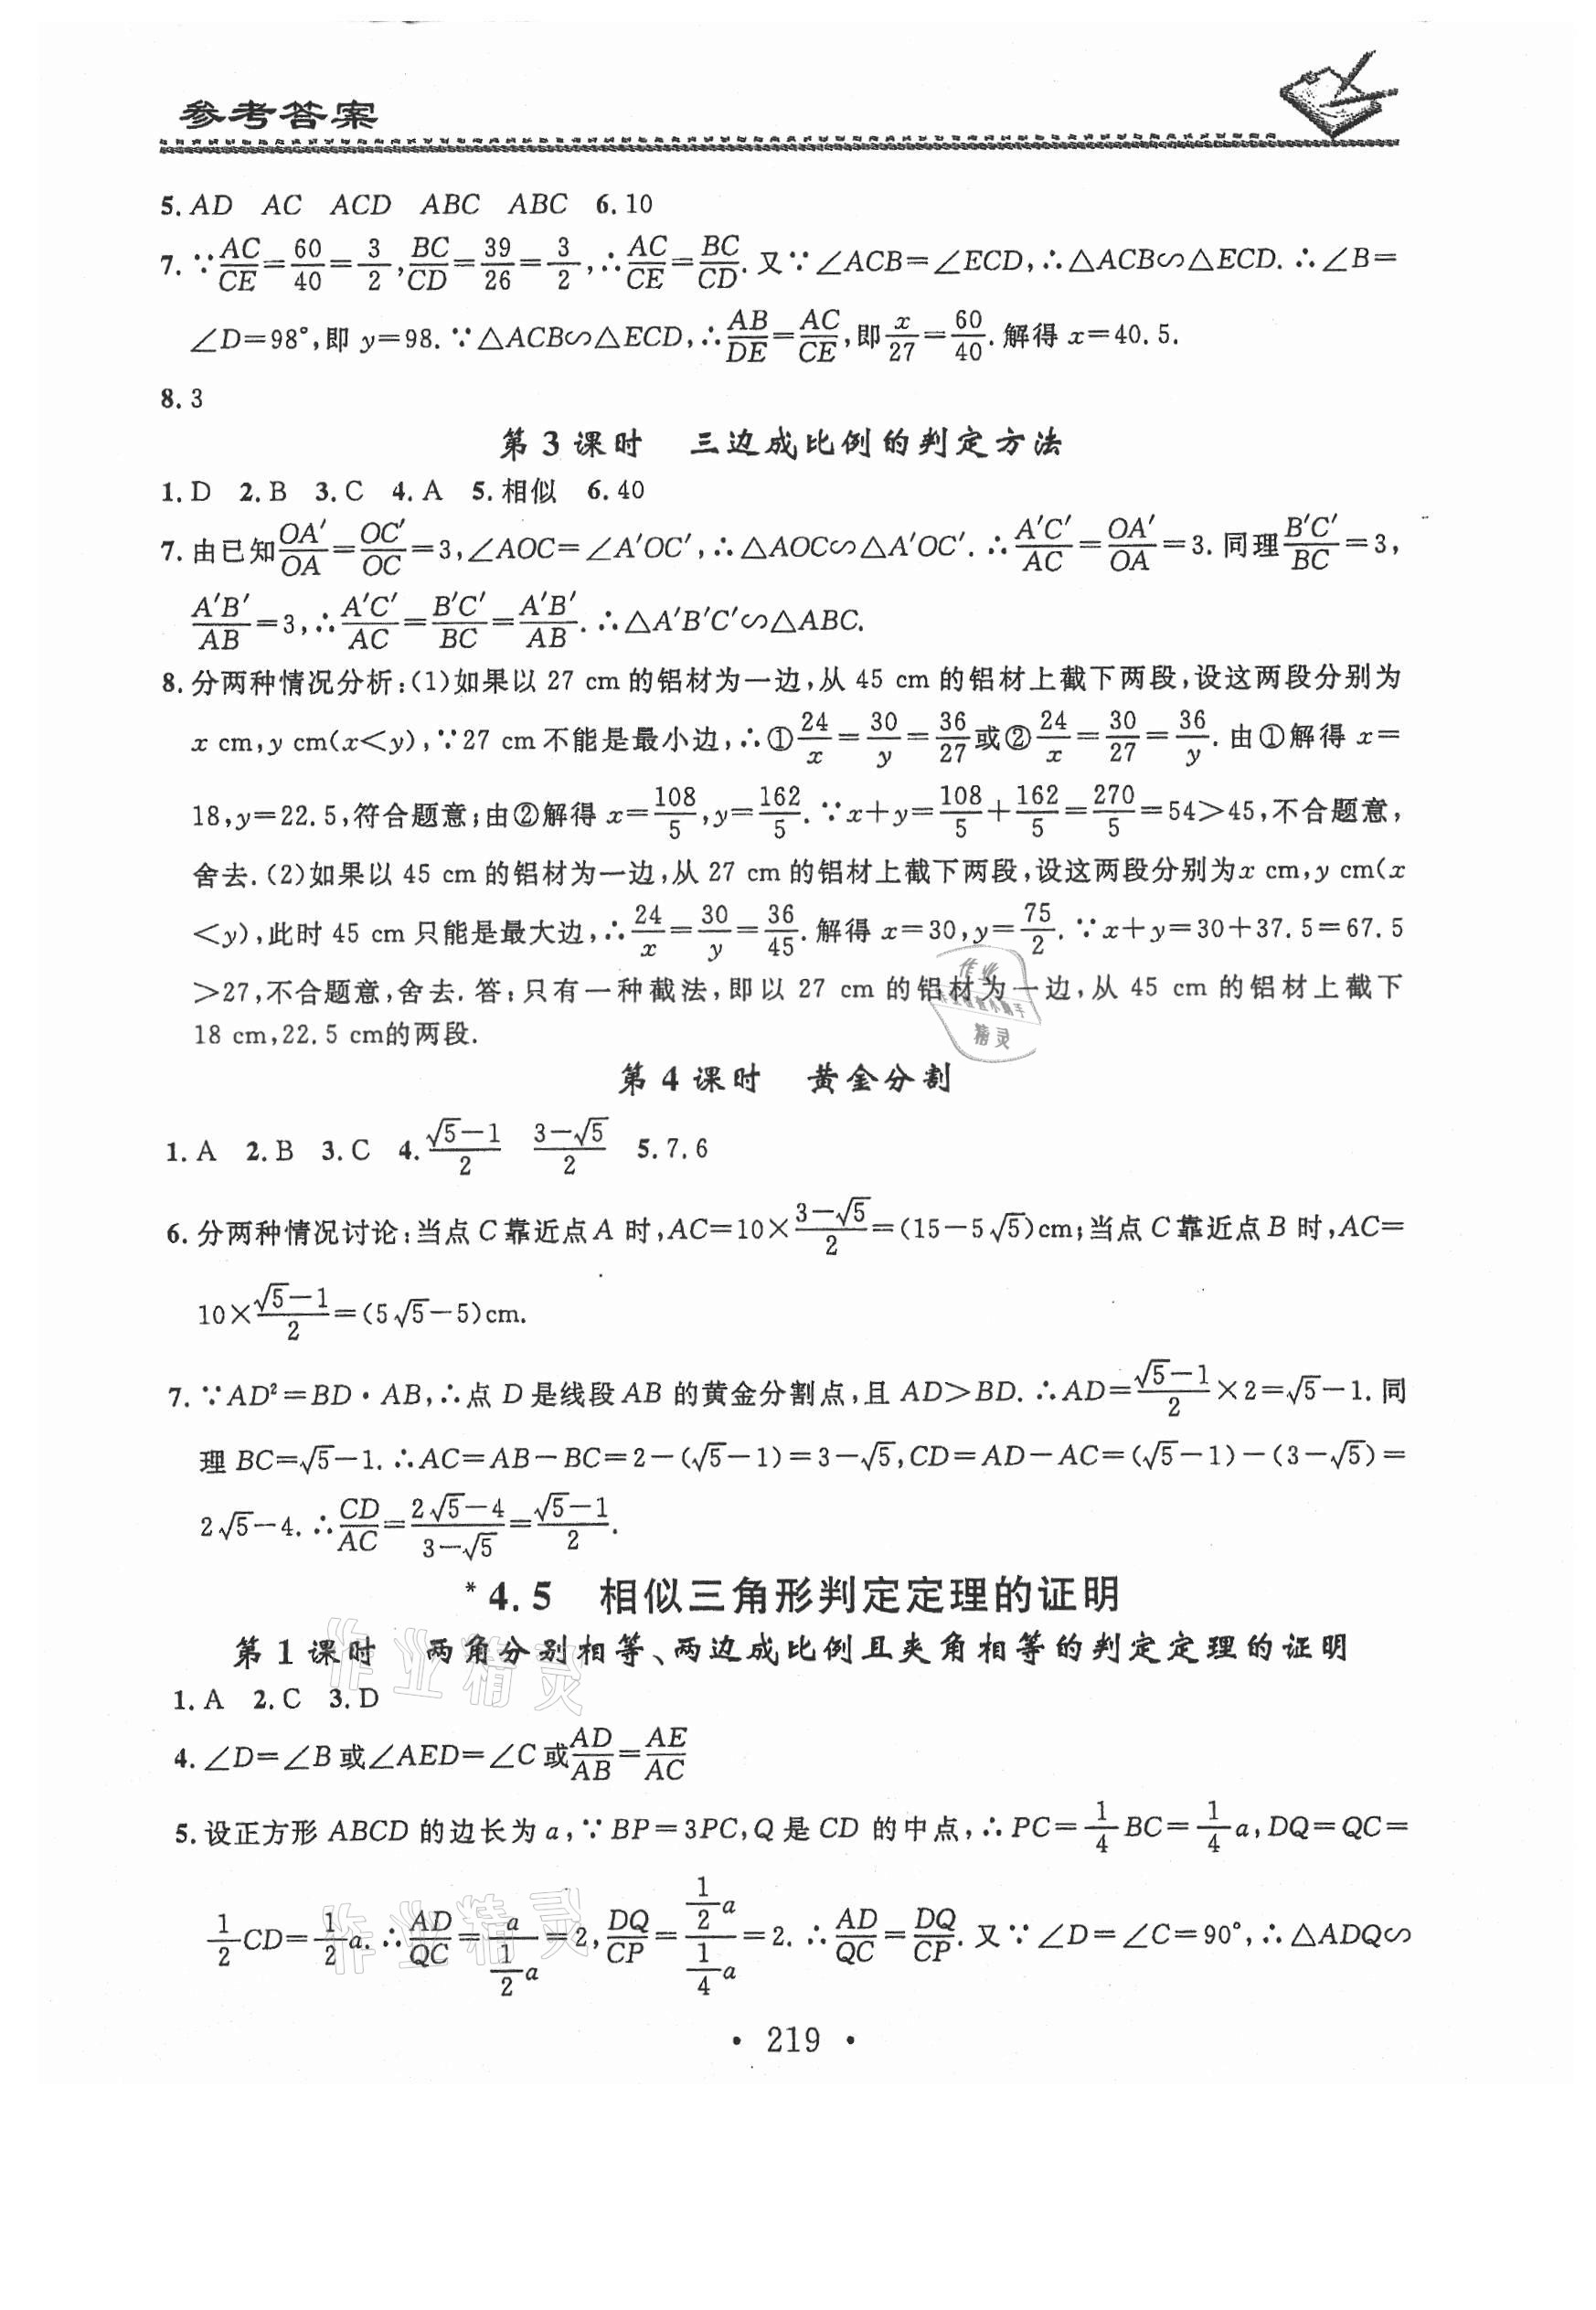 参考答案
5. AD AC ACD ABC ABC 6. 10
7. ∵AC/CE=60/40=3/2, BC/CD=39/26=3/2, ∴AC/CE=BC/CD. 又∵∠ACB=∠ECD, ∴△ACB∽△ECD. ∴∠B=
∠D=98°, 即 y=98. ∵△ACB∽△ECD, ∴AB/DE=AC/CE, 即x/27=60/40. 解得 x=40.5.
8. 3
第 3 课时 三边成比例的判定方法
1. D 2. B 3. C 4. A 5. 相似 6. 40
7. 由已知OA′/OA=OC′/OC=3, ∠AOC=∠A′OC′, ∴△AOC∽△A′OC′. ∴A′C′/AC=OA′/OA=3. 同理B′C′/BC=3,
A′B′/AB=3, ∴A′C′/AC=B′C′/BC=A′B′/AB. ∴△A′B′C′∽△ABC.
8. 分两种情况分析:(1)如果以 27 cm 的铝材为一边,从 45 cm 的铝材上截下两段,设这两段分别为
x cm, y cm(x<y), ∵27 cm 不能是最小边, ∴①24/x=30/y=36/27或②24/x=30/27=36/y. 由①解得 x=
18, y=22.5, 符合题意;由②解得 x=108/5, y=162/5. ∵x+y=108/5+162/5=270/5=54>45, 不合题意,
舍去. (2)如果以 45 cm 的铝材为一边,从 27 cm 的铝材上截下两段,设这两段分别为x cm, y cm(x
<y), 此时 45 cm 只能是最大边, ∴24/x=30/y=36/45. 解得 x=30, y=75/2. ∵x+y=30+37.5=67.5
>27, 不合题意, 舍去. 答:只有一种截法, 即以 27 cm 的铝材为一边, 从 45 cm 的铝材上截下
18 cm, 22.5 cm的两段.
第 4 课时 黄金分割
1. A 2. B 3. C 4. (√5−1)/2 (3−√5)/2 5. 7.6
6. 分两种情况讨论:当点 C 靠近点 A 时, AC=10×(3−√5)/2=(15−5√5)cm;当点 C 靠近点 B 时, AC=
10×(√5−1)/2=(5√5−5)cm.
7. ∵AD²=BD·AB, ∴点 D 是线段 AB 的黄金分割点, 且 AD>BD. ∴AD=(√5−1)/2×2=√5−1. 同
理 BC=√5−1. ∴AC=AB−BC=2−(√5−1)=3−√5, CD=AD−AC=(√5−1)−(3−√5)=
2√5−4. ∴CD/AC=(2√5−4)/(3−√5)=(√5−1)/2.
*4.5 相似三角形判定定理的证明
第 1 课时 两角分别相等、两边成比例且夹角相等的判定定理的证明
1. A 2. C 3. D
4. ∠D=∠B 或∠AED=∠C 或AD/AB=AE/AC
5. 设正方形 ABCD 的边长为 a, ∵BP=3PC, Q 是 CD 的中点, ∴PC=1/4 BC=1/4 a, DQ=QC=
1/2 CD=1/2 a. ∴AD/QC=a/(1/2 a)=2, DQ/CP=(1/2 a)/(1/4 a)=2. ∴AD/QC=DQ/CP. 又∵∠D=∠C=90°, ∴△ADQ∽
· 219 ·
作业精灵
作业精灵
作业
精灵